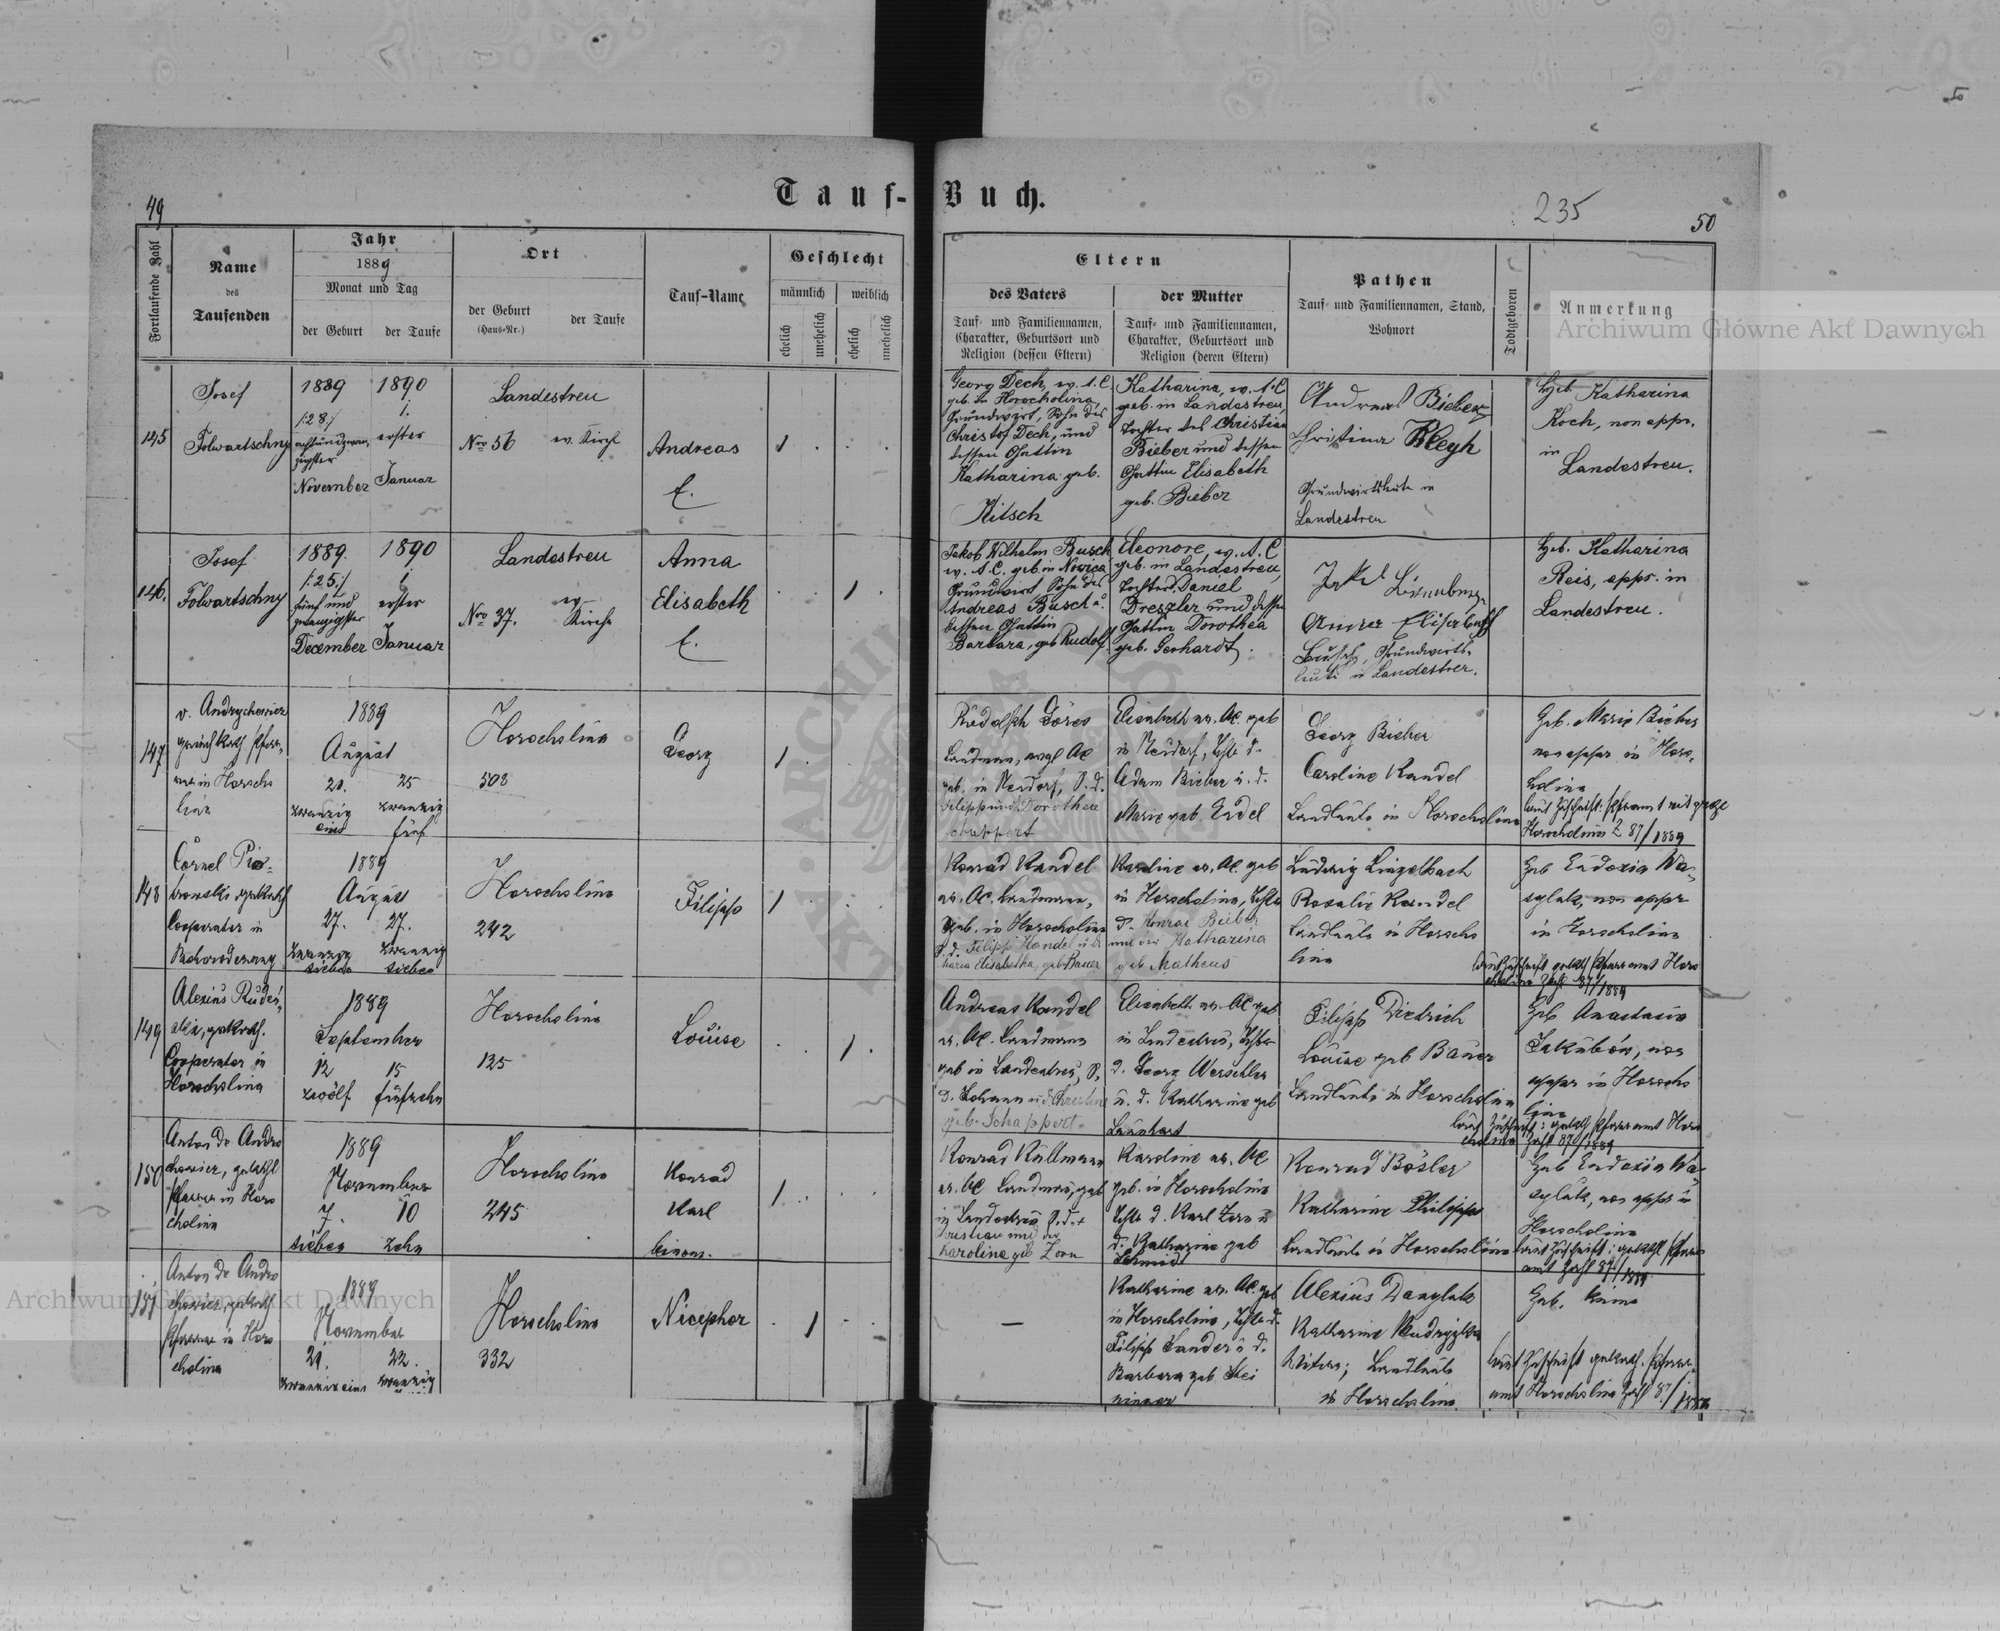 Tauf-Buch.
49
235
50
Fortlaufende Zahl
Name
des
Taufenden
Jahr
1889
Monat und Tag
der Geburt
der Taufe
Ort
der Geburt
(Haus-Nr.)
der Taufe
Tauf-Name
Geschlecht
männlich
weiblich
ehelich
unehelich
ehelich
unehelich
Eltern
des Vaters
Tauf- und Familiennamen,
Charakter, Geburtsort und
Religion (dessen Eltern)
der Mutter
Tauf- und Familiennamen,
Charakter, Geburtsort und
Religion (deren Eltern)
Pathen
Tauf- und Familiennamen, Stand,
Wohnort
Todtgeboren
Anmerkung
Archiwum Główne Akt Dawnych
145
Josef
Folwartschny
1889
/:28:/
achtundzwan-
zigster
November
1890
1.
erster
Januar
Landestreu
Nro 56
ev. Kirche
Andreas
E.
1
Georg Dech, ev. A. C.
geb. in Horocholina,
Grundwirt, Sohn des
Christof Dech, und
dessen Gattin
Katharina geb.
Kitsch
Katharina, ev. A. C.
geb. in Landestreu,
Tochter des Christian
Bieber und dessen
Gattin Elisabeth
geb. Bieber
Andreas Bieber
Christina Kleyh
Grundwirtsleute in
Landestreu
Heb. Katharina
Koch, non appr.
in
Landestreu.
146.
Josef
Folwartschny
1889.
/:25:/
fünf und
zwanzigster
December
1890
1.
erster
Januar
Landestreu
Nro 37.
ev.
Kirche
Anna
Elisabeth
E.
1
Jakob Wilhelm Busch
ev. A. C. geb. in Nowica
Grundwirt, Sohn des
Andreas Busch u.
dessen Gattin
Barbara, geb. Rudolf.
Eleonore, ev. A. C
geb. in Landestreu,
Tochter d. Daniel
Dreszler und dessen
Gattin Dorothea
geb. Gerhardt.
Elisabeth
Busch, Grundwirts-
leute in Landestreu.
Heb. Katharina
Reis, appr. in
Landestreu.
147
v. Andrychowicz
griech kath Pfarr-
rer in Horocho
lina
1889
August
21.
zwanzig
eins
25
zwanzig
fünf
Horocholina
503
Georg
1
Rudolph Göres
Landmann, evgl AC
geb. in Neudorf, S. d.
Filipp und Dorothea
Schappert
Elisabeth ev. AC. geb
in Neudorf, Tchtr d.
Adam Bieber u. d.
Marie geb Endel
Georg Bieber
Caroline Kandel
Landleute in Horocholina
Geb. Marie Bieber
non appr in Horo-
cholina
Horocholina Z 87/1889
148
Cornel Pio-
trowski gr kath
Cooperator in
Bohorodczany
1889
August
27.
zwanzig
sieben
27.
zwanzig
sieben
Horocholina
242
Filipp
1
Konrad Kandel
ev. AC. Landmann,
geb. in Horocholina
S. d. Filipp Kandel u. d.
Maria Elisabetha, geb Bauer
Karoline ev. AC. geb
in Horocholina, Tchtr
d. Konrad Bieber
und der Katharina
geb Matheus
Ludwig Lingelbach
Rosalie Kandel
Landleute in Horocho
lina
Geb Eudoxia Wa-
sylak, non appr
in Horocholina
laut Zuschrift gr kath Pfarramt Horo
cholina Zahl 87/1889
149
Cooperator in
Horocholina
1889
September
12
zwölf
15
fünfzehn
Horocholina
125
Louise
1
Andreas Kandel
ev. AC. Landmann
geb in Landestreu, S.
d. Johann und Christine
geb. Schappert.
Elisabeth ev. AC. geb
in Landestreu, Tchtr
d. Georg Werschler
u. d. Katharine geb
Launhart
Filipp Diedrich
Louise geb Bauer
Landleute in Horocholina
Geb Anastasia
Jakubów, non
appr in Horocho
lina
laut Zuschrift: gr kath Pfarramt Horo
cholina Zahl 87/1889
150
Anton de Andro
chowicz, gr kathl
Pfarrer in Horo
cholina
1889
November
7.
sieben
10
zehn
Horocholina
245
Konrad
Karl
binom.
1
Konrad Kullmann
ev. AC Landmann, geb
in Landestreu S. d.
Christian und der
Karolina geb Zorn
Karoline ev. AC
geb. in Horocholina
Tchtr d. Karl Zorn u
d. Katharine geb
Schmidt
Konrad Bösler
Katharine Philipps
Landleute in Horocholina
Geb Eudoxia Wa-
sylak, non appr in
Horocholina
laut Zuschrift: gr kathl Pfarr
amt Zahl 87/1889
151
Anton de Andro
chowicz, gr kath
Pfarrer in Horo
cholina
1889
November
21.
zwanzig eins
22.
zwanzig
Horocholina
332
Nicephor
1
—
Katharine ev. AC. geb
in Horocholina, Tchtr d.
Filipp Sander u d.
Barbara geb Stei
ninger
Alexius Danylak
Katharine Mudryzka
Landleute
in Horocholina.
Geb. keine
laut Zuschrift gr kath. Pfarr-
amt Horocholina Zahl 87/1889
Archiwum Główne Akt Dawnych